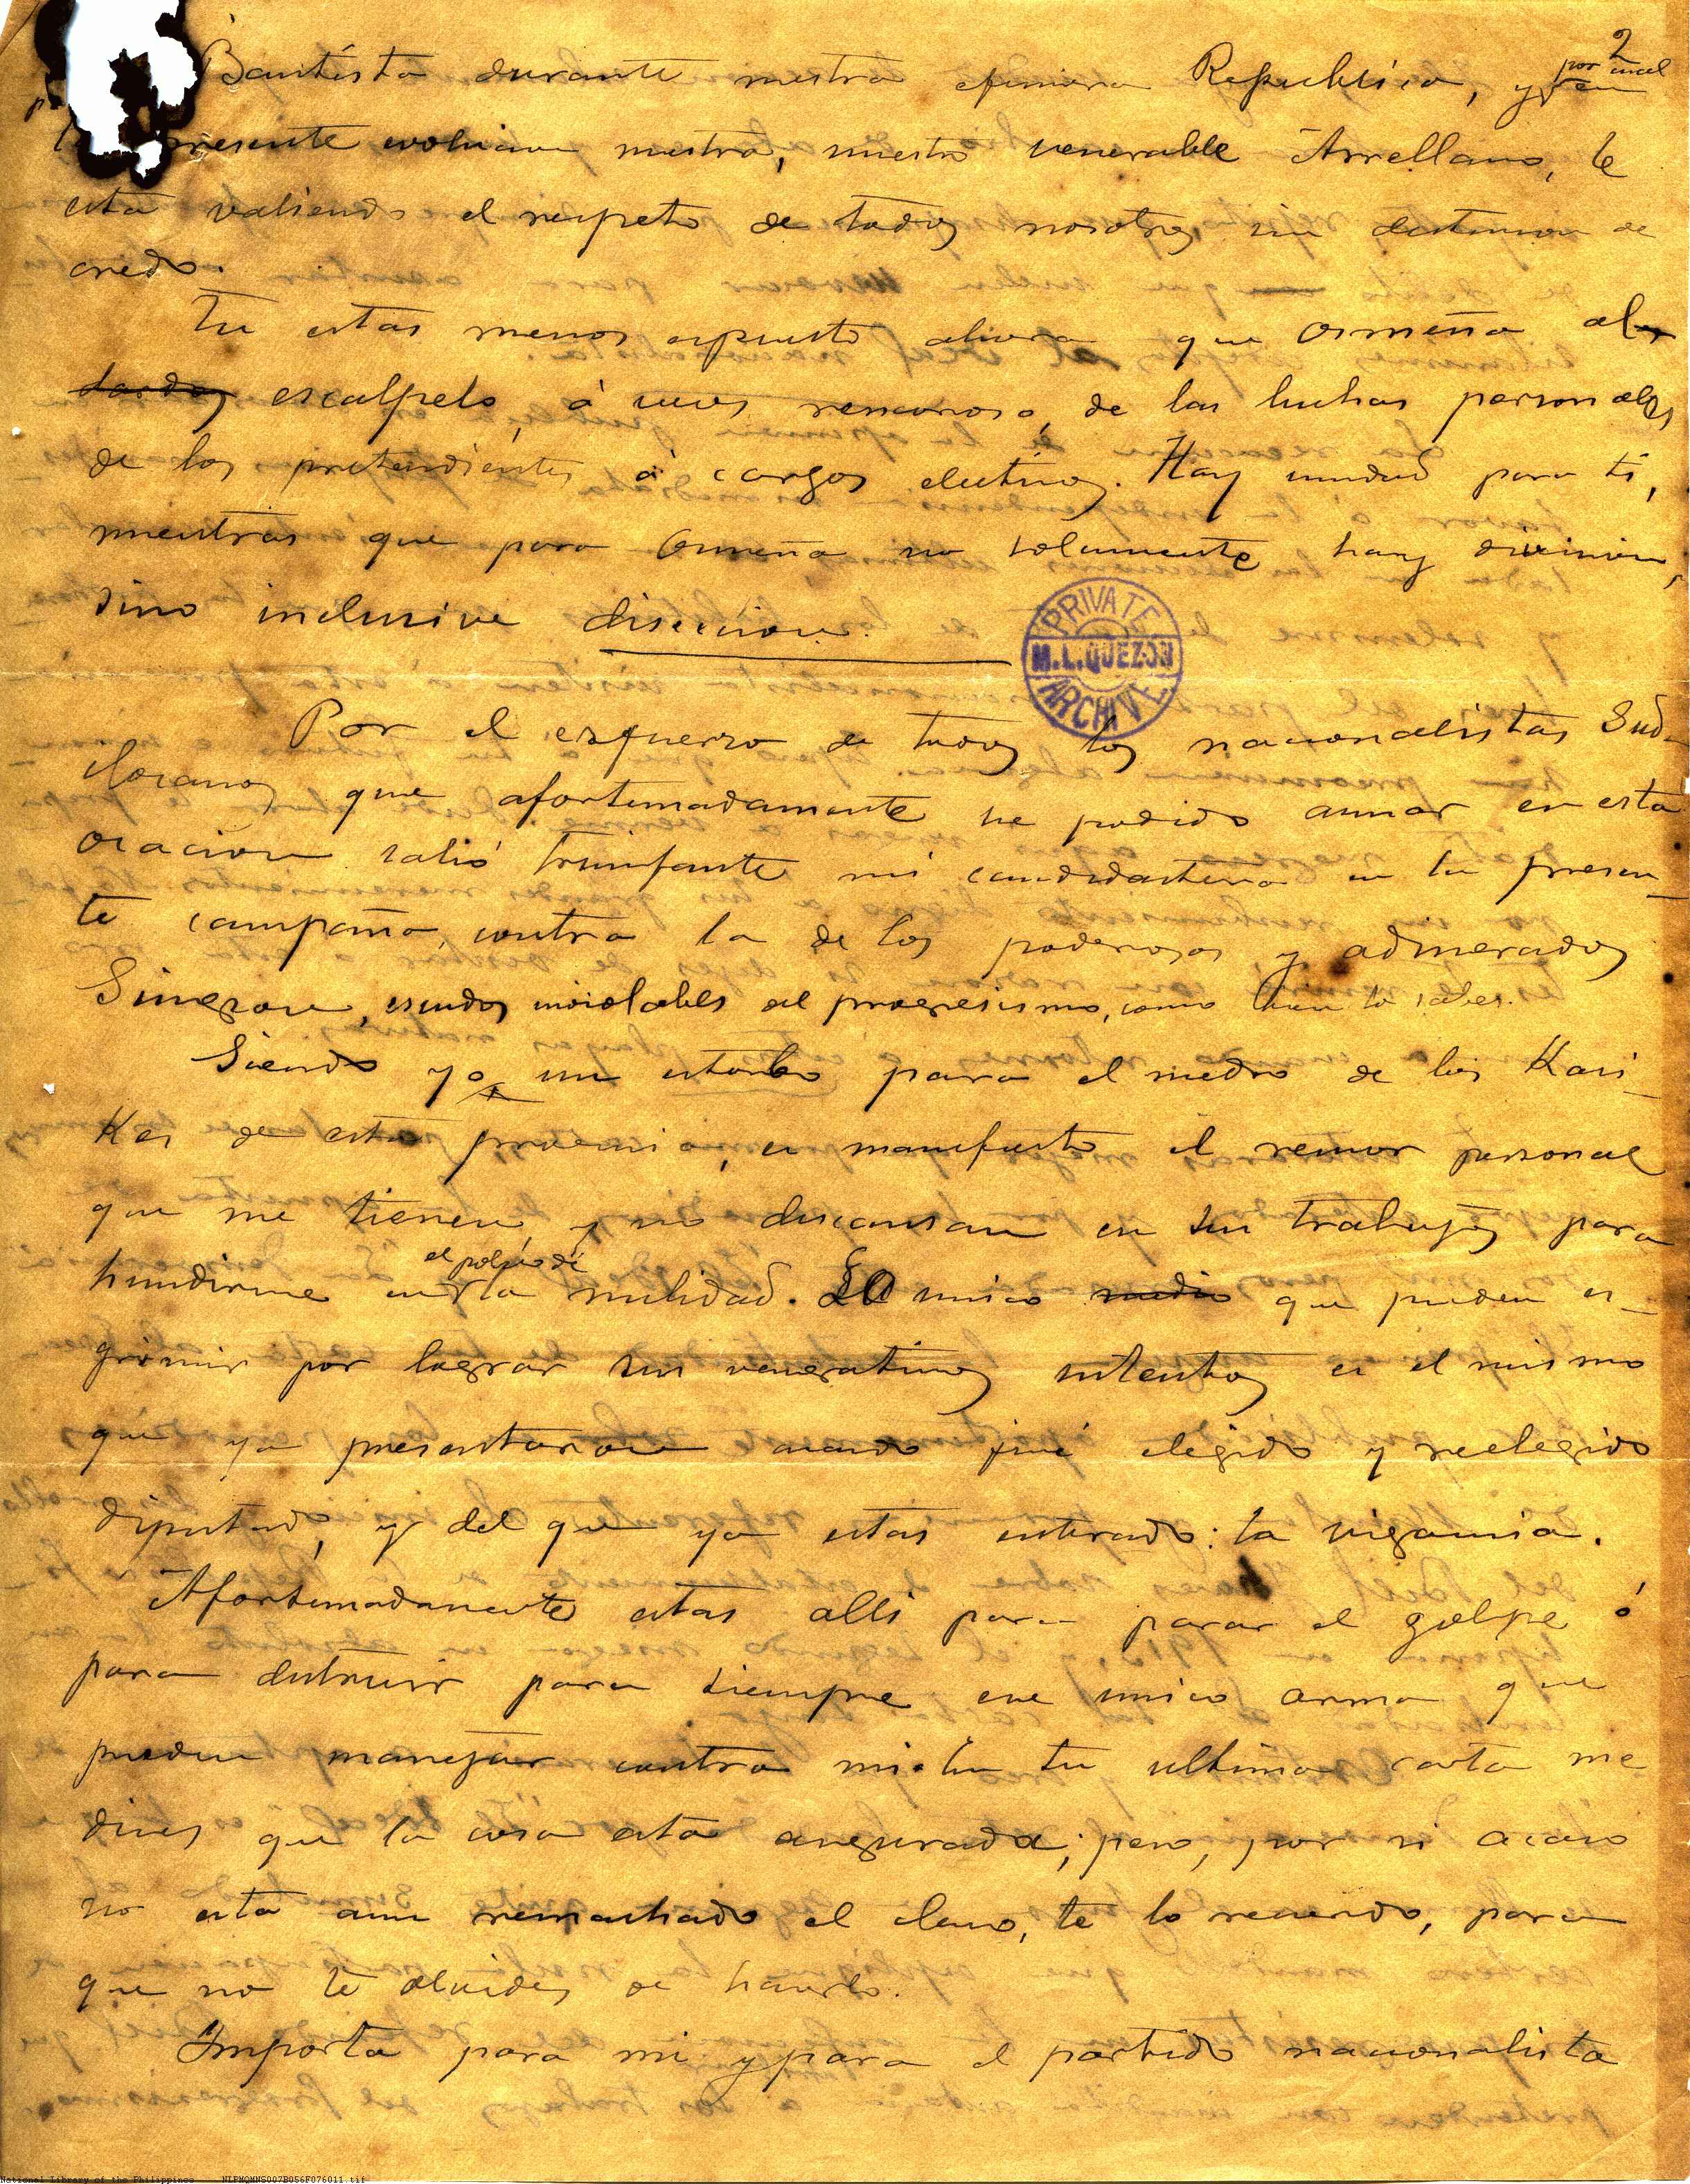 2
Bautista durante nuestra efimera Republica, y por
presente evolucion nuestra, nuestro venerable Arrellano, le
esta valiendo el respeto de todos nosotros sin distincion de
credo.
Tu estas menos expuesto ahora que Osmeña al
escalpelo, á veces rencoroso, de las luchas personales
de los pretendientes á cargos electivos. Hay unidad para ti,
mientras que para Osmeña no solamente hay division,
sino inclusive diseccion.
PRIVATE
M.L.QUEZON
ARCHIVE
Por el esfuerzo de todos los nacionalistas Sud-
ilocanos que afortunadamente he podido aunar en esta
ocacion salió triunfante mi candidatura en la presen-
te campaña, contra la de los poderosos y adinerados
Singson, escudos inviolables del progresismo, como bien lo sabes.
Siendo yo un estorbo para el medro de los Kasi-
kes de esta provincia, es manifiesto el rencor personal
que me tienen, y no descansan en sus trabajos para
hundirme en el polvo de la nulidad. Lo unico medio que pueden es-
grimir por lograr sus intentos es el mismo
que ya presentaron cuando fué elegido y reelegido
diputado, y del que ya estas enterado: la vigamia.
Afortunadamente estas alli para parar el golpe ó
para destruir para siempre ese unico arma que
pueden manejar contra mi. En tu ultima carta me
dices que la cosa esta asegurada; pero, por si acaso
no esta aun remachado el clavo, te lo recuerdo, para
que no te olvides de hacerlo.
Importa para mi y para el partido nacionalista
National Library of the Philippines NLPMQMNS007B056F076011.tif